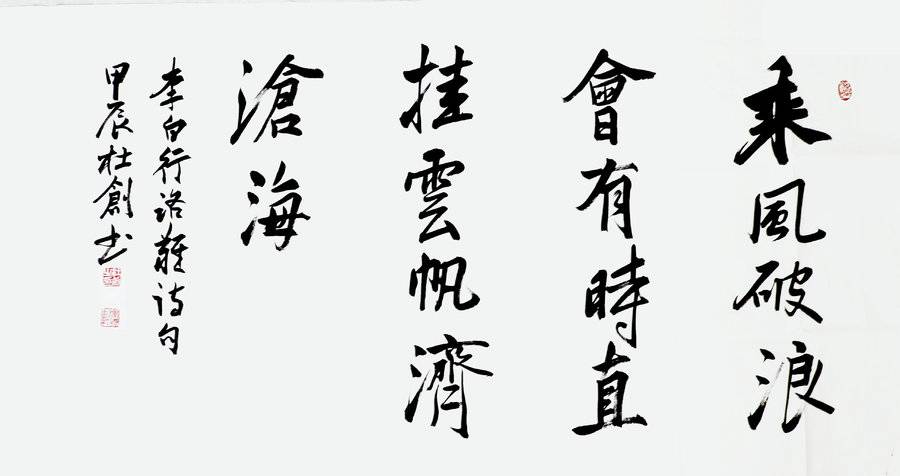 乘風破浪
會有時直
挂雲帆濟
滄海
李白行路難詩句
甲辰杜創书